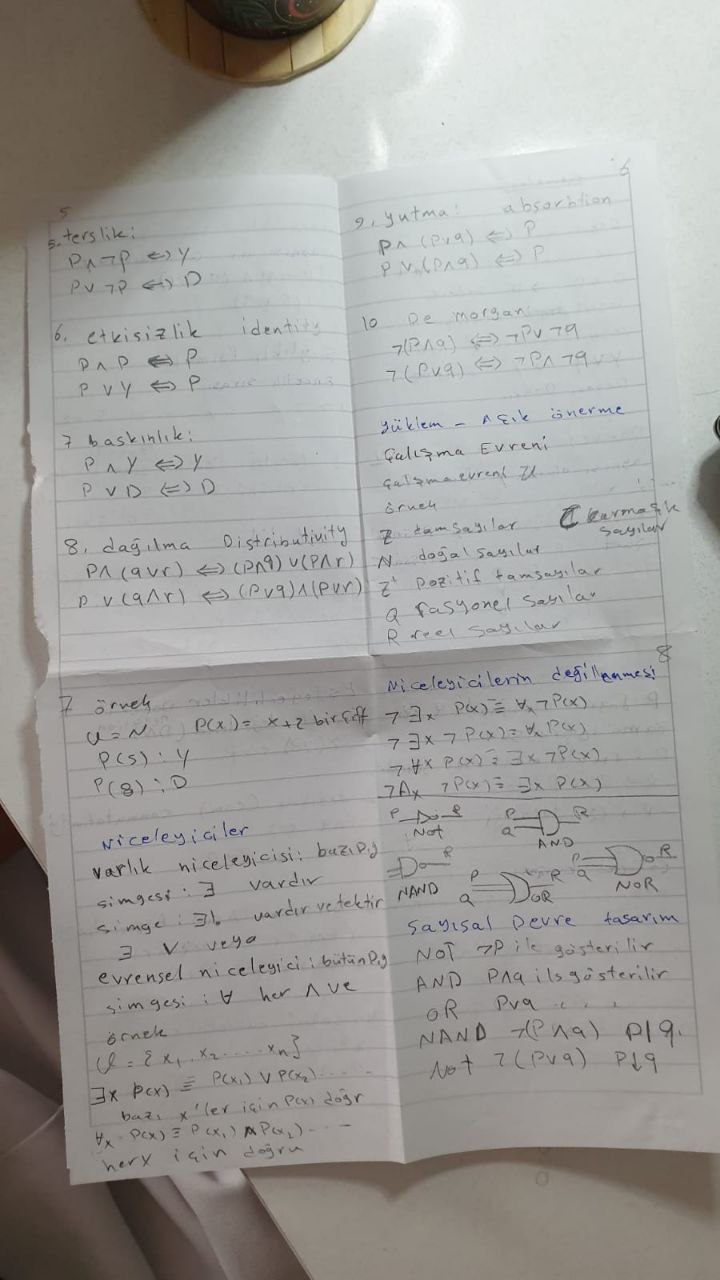 5
5. terslik:
P∧¬P ⇔ Y
P∨¬P ⇔ D
6. etkisizlik identity
P∧D ⇔ P
P∨Y ⇔ P
7 baskınlık:
P∧Y ⇔ Y
P∨D ⇔ D
8. dağılma Distributivity
P∧(q∨r) ⇔ (P∧q)∨(P∧r)
P∨(q∧r) ⇔ (P∨q)∧(P∨r)
6
9. yutma: absorbtion
P∧(P∨q) ⇔ P
P∨(P∧q) ⇔ P
10 De morgan:
¬(P∧q) ⇔ ¬P∨¬q
¬(P∨q) ⇔ ¬P∧¬q
Yüklem - Açık önerme
Çalışma Evreni
Çalışma evreni U
örnek
Z tamsayılar C karmaşık sayılar
N doğal sayılar
Z⁺ pozitif tamsayılar
Q rasyonel sayılar
R reel sayılar
7 örnek
U = N P(x) = x+2 bir çift
P(5) : Y
P(8) : D
Niceleyiciler
varlık niceleyicisi: bazı
simgesi : ∃ vardır
simge : ∃! vardır ve tektir
∃ ∨ veya
evrensel niceleyici : bütün
simgesi : ∀ her ∧ ve
örnek
U = {x₁, x₂ ..... xₙ}
∃x P(x) ≡ P(x₁) ∨ P(x₂) ....
bazı x'ler için P(x) doğr
∀x P(x) ≡ P(x₁) ∧ P(x₂) ....
her x için doğru
8
Niceleyicilerin değillenmesi
¬∃x P(x) ≡ ∀x ¬P(x)
¬∃x ¬P(x) ≡ ∀x P(x)
¬∀x P(x) ≡ ∃x ¬P(x)
¬∀x ¬P(x) ≡ ∃x P(x)
P R P q R
Not AND
R P q R P q R
NAND OR NOR
Sayısal Devre tasarım
NOT ¬P ile gösterilir
AND P∧q ile gösterilir
OR P∨q . . .
NAND ¬(P∧q) P|q.
Not ¬(P∨q) P↓q